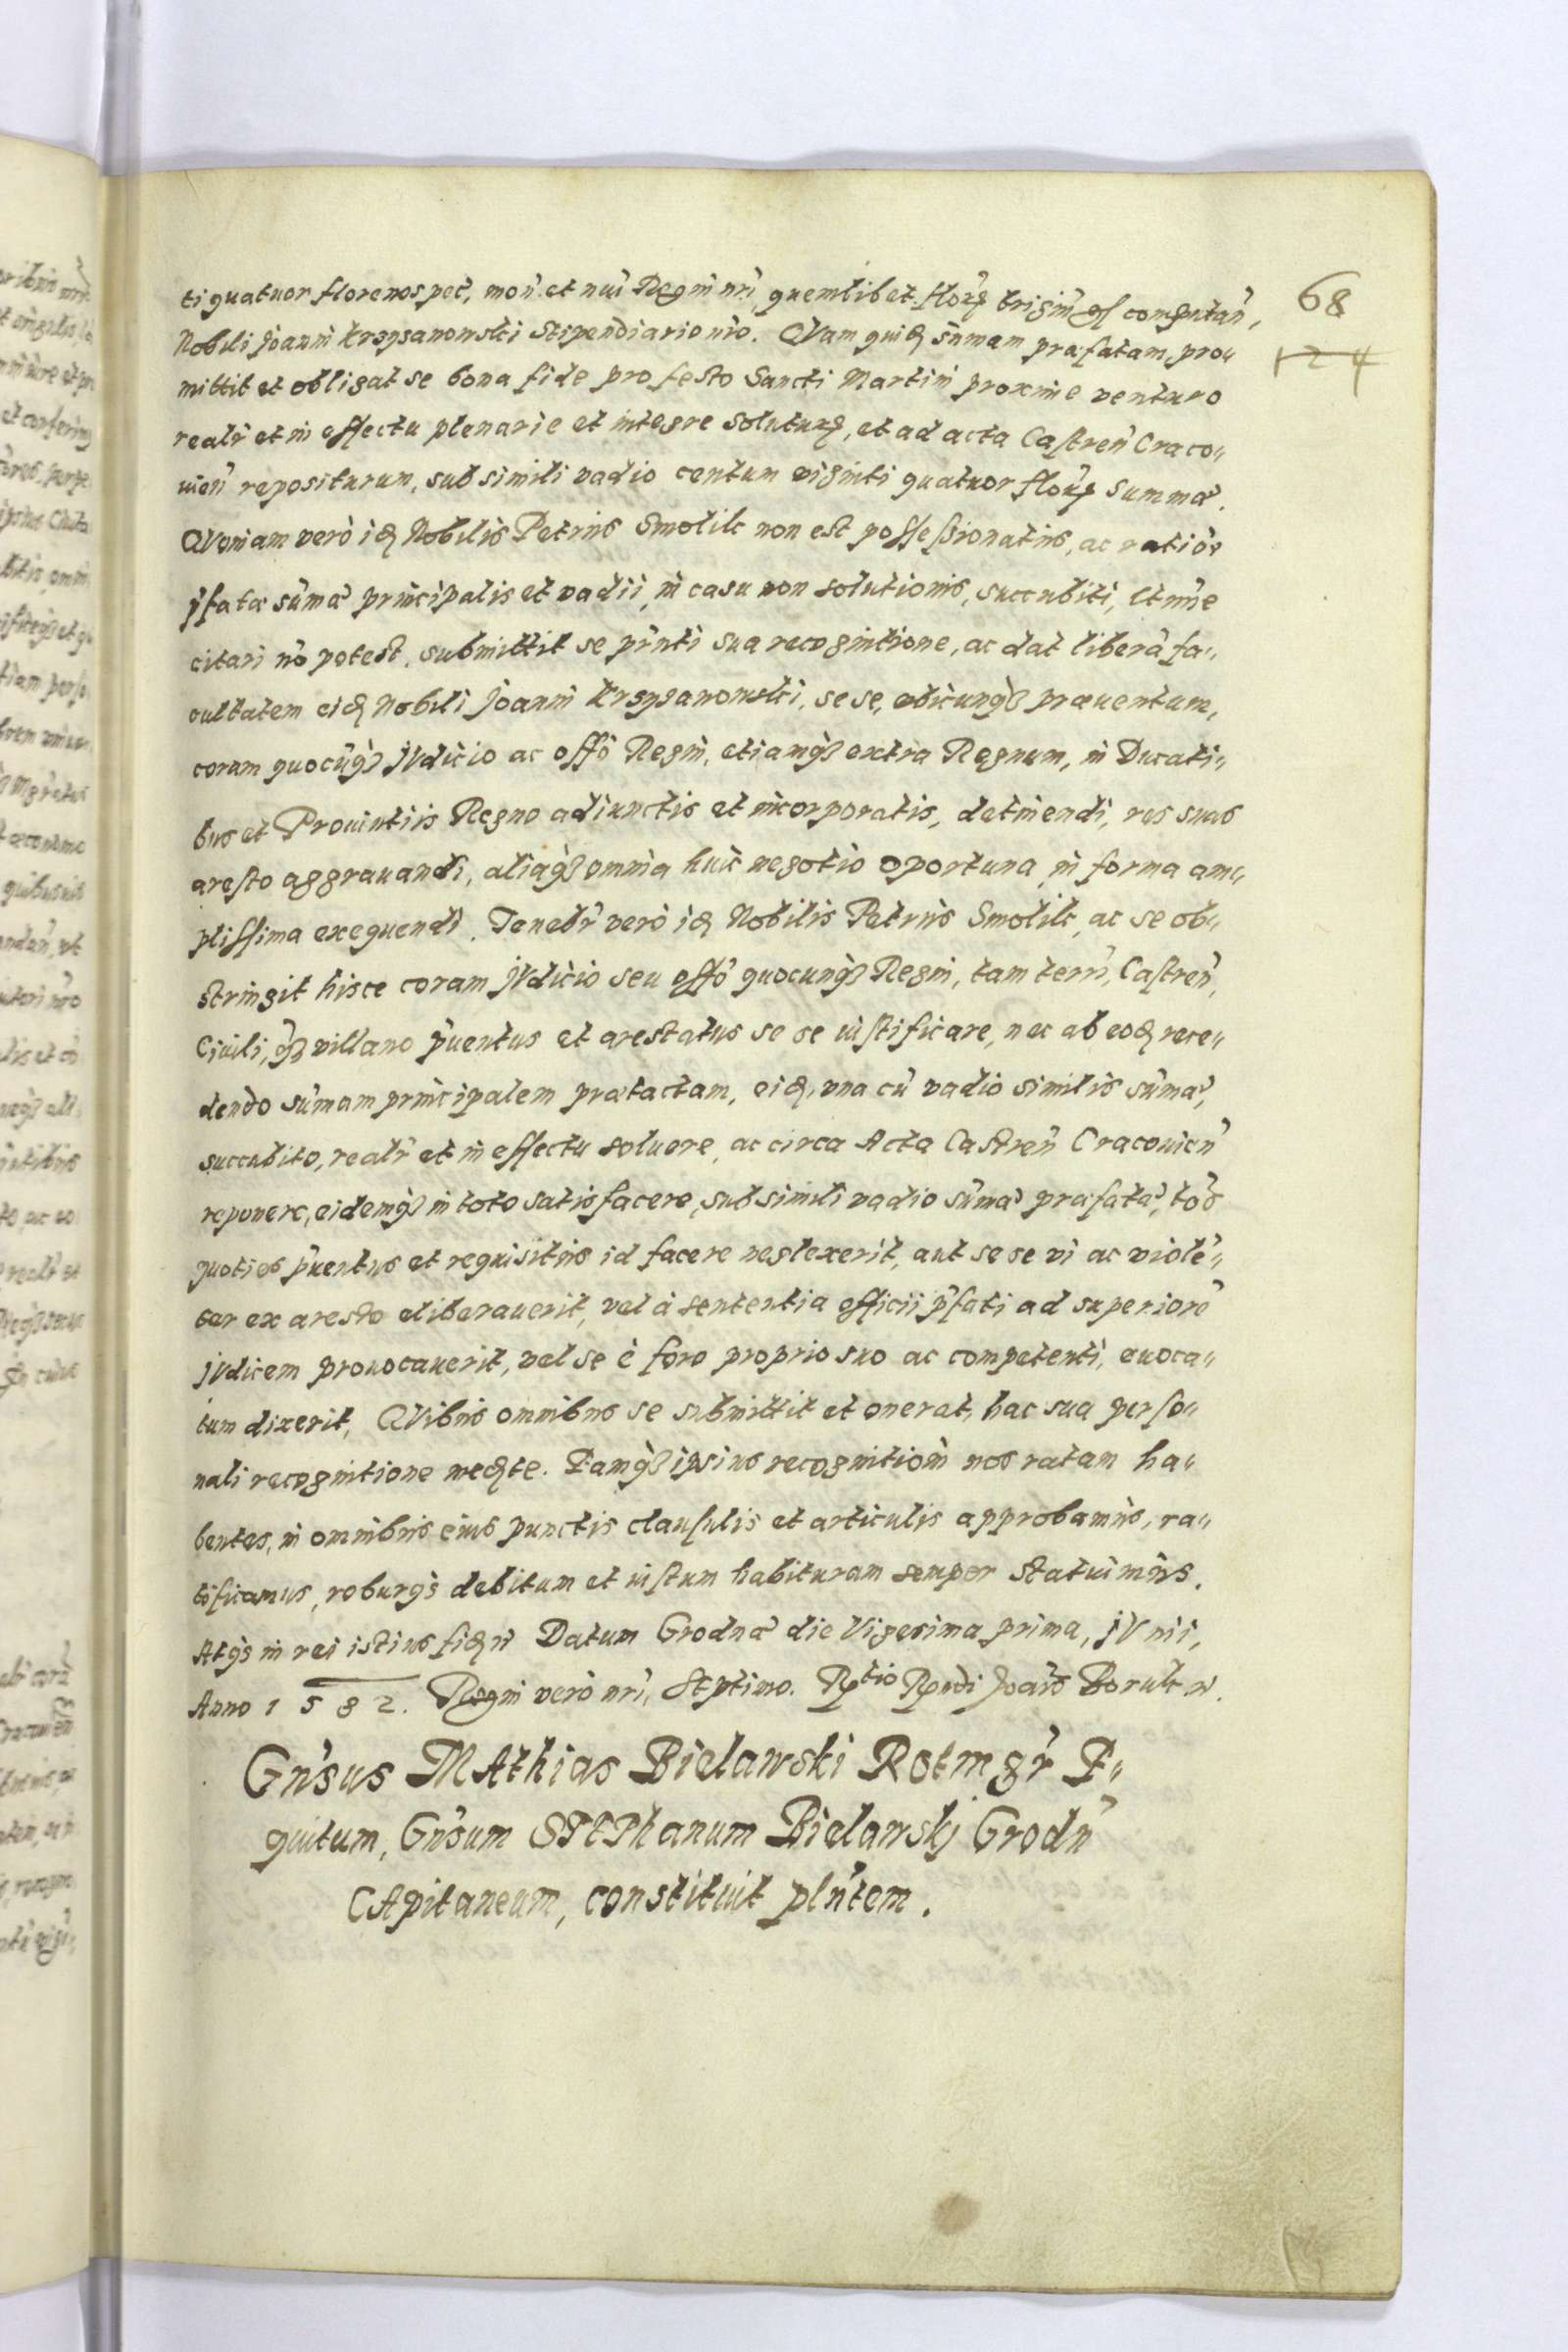 68
124
ti quatuor florenos pec̃, moñ et nũi Regni nr̃i, quemlibet floꝝ trigiñ gs̃ computañ,
Nobili Joanni Krzysanowski Stipendiario nr̃o. QVam quidẽ sum̃am præfatam, pro„
mittit et obligat se bona fide pro festo Sancti Martini proxime venturo
realr̃ et in effectu plenarie et integre soluturꝫ, et ad acta Castreñ Craco„
uieñ repositurum, sub simili vadio centum viginti quatuor floꝝ summæ.
QVoniam verò idẽ Nobilis Petrus Smolik non est possessionatus, ac ratiõe
p̃fatæ sum̃æ principalis et vadii, in casu non solutionis, succubiti, et
citari nõ potest, submittit se pñti sua recognitione, ac dat liberã fa„
cultatem eidẽ Nobili Joanni Krzysanowski, se se, vbicunqꝫ præuentum,
coram quocũqꝫ jVdicio ac offõ Regni, etiamqꝫ extra Regnum, in Ducati„
bus et Prouintiis Regno adiunctis et incorporatis, detinendi, res suas
aresto aggrauandi, aliaqꝫ omnia huic negotio oportuna in forma am„
plissima exequendi. Tenetr̃ verò idẽ Nobilis Petrus Smolik, ac se ob„
stringit hisce coram jVdicio seu offõ quocunqꝫ Regni, tam terr̃, Castreñ,
Ciuili, qꝫ villano p̃uentus et arestatus se se iustificare, nec ab eodẽ rece„
dendo sum̃am principalem prætactam, eidẽ, vna cũ vadio similis sum̃æ,
succubito, realr̃ et in effectu soluere, ac circa Acta Castreñ Cracouieñ
reponere, eidemqꝫ in toto satisfacere, sub simili vadio sum̃æ præfatæ, tõs
quoties p̃uentus et requisitus id facere neglexerit, aut se se vi ac violẽ„
ter ex aresto eliberauerit, vel à sententia officii p̃fati ad superiorẽ
jVdicem prouocauerit, vel se è foro proprio suo ac competenti, euoca„
tum dixerit, QVibus omnibus se submittit et onerat, hac sua perso„
nali recognitione medẽte. Eamqꝫ ipsius recognitiõni nos ratam ha„
bentes, in omnibus eius punctis clausulis et articulis approbamus, ra„
tificamus, roburqꝫ debitum et iustum habituram semper statuimus.
Atqꝫ in rei istius fidẽ Datum Grodnæ die Vigesima prima, jVnii,
Anno 1582. Regni verò nr̃i, Septimo. Rtio Rndi Joañs Borukow.
Gñsus MAthias Bielawski Rotmgr̃ E„
quitum, Gñsum STEPhanum Bielawskj Grodñ
CApitaneum, constituit plñtem.